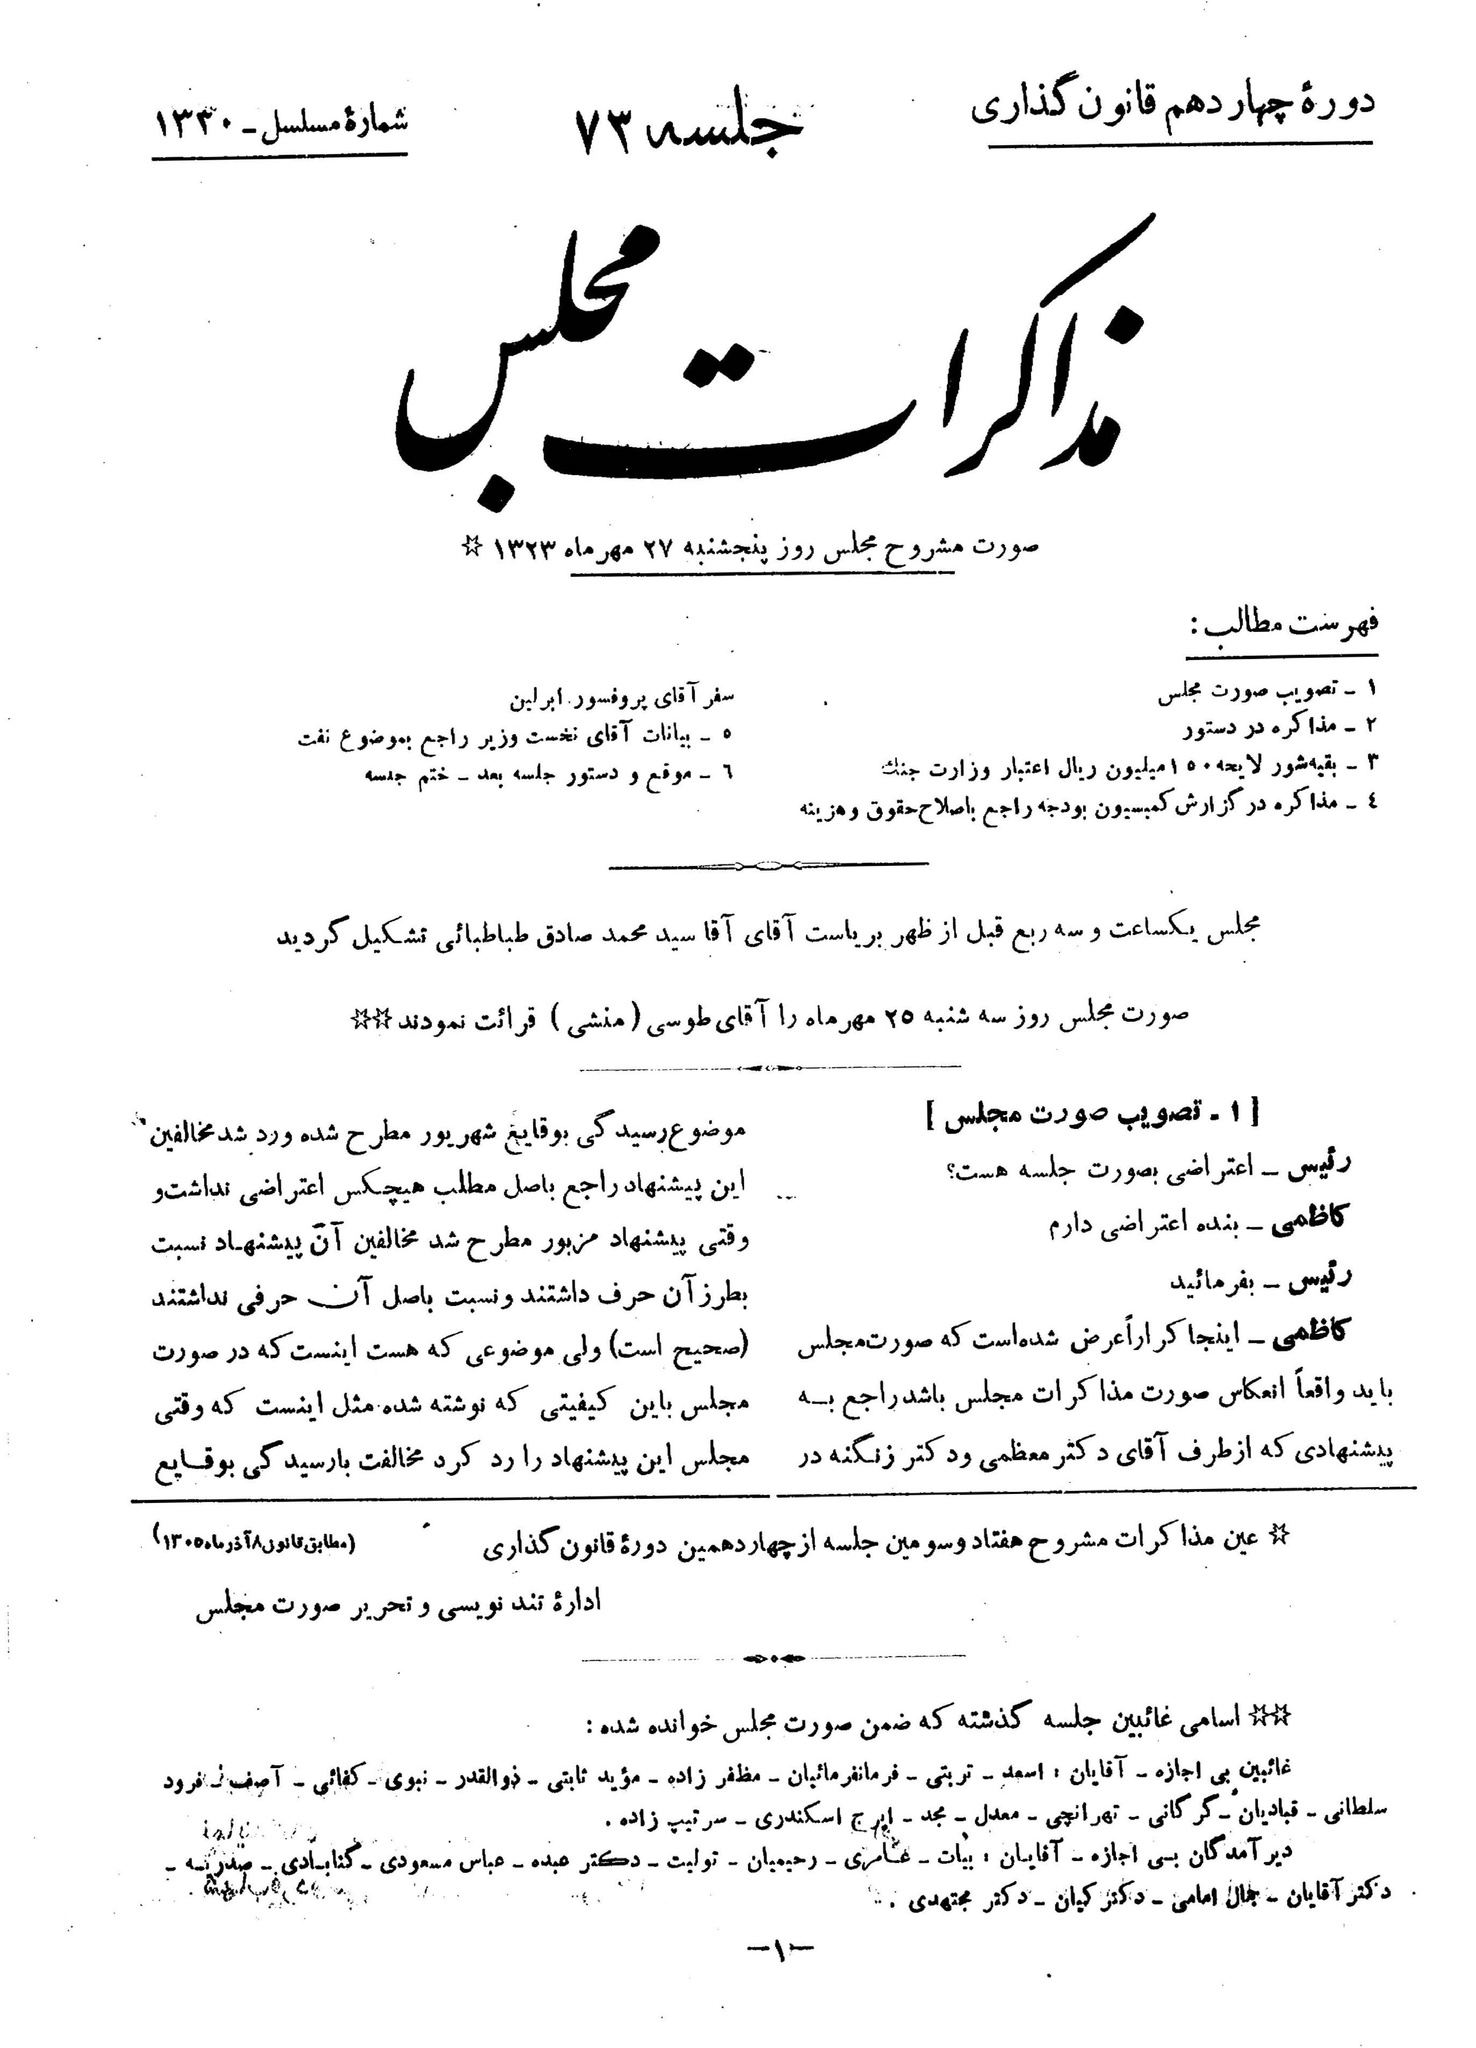 دورهٔ چهاردهم قانون گذاری
جلسه ۷۳
شمارهٔ مسلسل - ۱۳۳۰
مذاکرات مجلس
صورت مشروح مجلس روز پنجشنبه ۲۷ مهرماه ۱۳۲۳ ☆
فهرست مطالب :
۱ - تصویب صورت مجلس
۲ - مذاکره در دستور
۳ - بقیه شور لایحه ۱۵۰ میلیون ریال اعتبار وزارت جنك
٤ - مذاکره در گزارش کمیسیون بودجه راجع باصلاح حقوق و هزینه
سفر آقای پروفسور ابرلین
٥ - بیانات آقای نخست وزیر راجع بموضوع نفت
٦ - موقع و دستور جلسه بعد - ختم جلسه
مجلس یکساعت و سه ربع قبل از ظهر بریاست آقای آقا سید محمد صادق طباطبائی تشکیل گردید
صورت مجلس روز سه شنبه ۲۵ مهرماه را آقای طوسی ( منشی ) قرائت نمودند ☆☆
[ ۱ - تصویب صورت مجلس ]
رئیس - اعتراضی بصورت جلسه هست؟
کاظمی - بنده اعتراضی دارم
رئیس - بفرمائید
کاظمی - اینجا کراراً عرض شده‌است که صورت مجلس
باید واقعاً انعکاس صورت مذاکرات مجلس باشد راجع بـه
پیشنهادی که از طرف آقای دکتر معظمی و دکتر زنگنه در
موضوع رسیدگی بوقایع شهریور مطرح شده ورد شد مخالفین
این پیشنهاد راجع باصل مطلب هیچکس اعتراضی نداشت و
وقتی پیشنهاد مزبور مطرح شد مخالفین آن پیشنهـاد نسبت
بطرز آن حرف داشتند و نسبت باصل آن حرفی نداشتند
(صحیح است) ولی موضوعی که هست اینست که در صورت
مجلس باین کیفیتی که نوشته شده مثل اینست که وقتی
مجلس این پیشنهاد را رد کرد مخالفت بارسیدگی بوقـایع
☆ عین مذاکرات مشروح هفتاد و سومین جلسه از چهاردهمین دورهٔ قانون گذاری (مطابق قانون ۸ آذرماه ۱۳۰۵)
ادارهٔ تند نویسی و تحریر صورت مجلس
☆☆ اسامی غائبین جلسه گذشته که ضمن صورت مجلس خوانده شده :
غائبین بی اجازه - آقایان : اسعد - تربتی - فرمانفرمائیان - مظفر زاده - مؤید ثابتی - ذوالقدر - نبوی - کفائی - آصف - فرود
سلطانی - قبادیان - گرگانی - تهرانچی - معدل - مجد - ایرج اسکندری - سرتیپ زاده .
دیرآمدگان بـی اجازه - آقایـان : بیات - عـامری - رحیمیان - تولیت - دکتر عبده - عباس مسعودی - گنابـادی - صدریـه -
دکتر آقایان - جمال امامی - دکتر کیان - دکتر مجتهدی .
-۱-